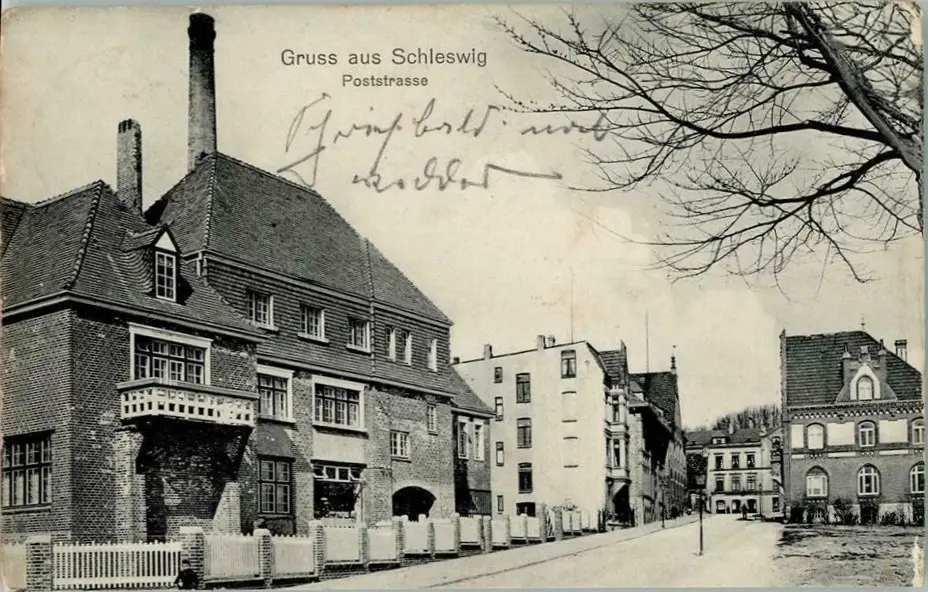 Gruss aus Schleswig
Poststrasse
Schreib bald